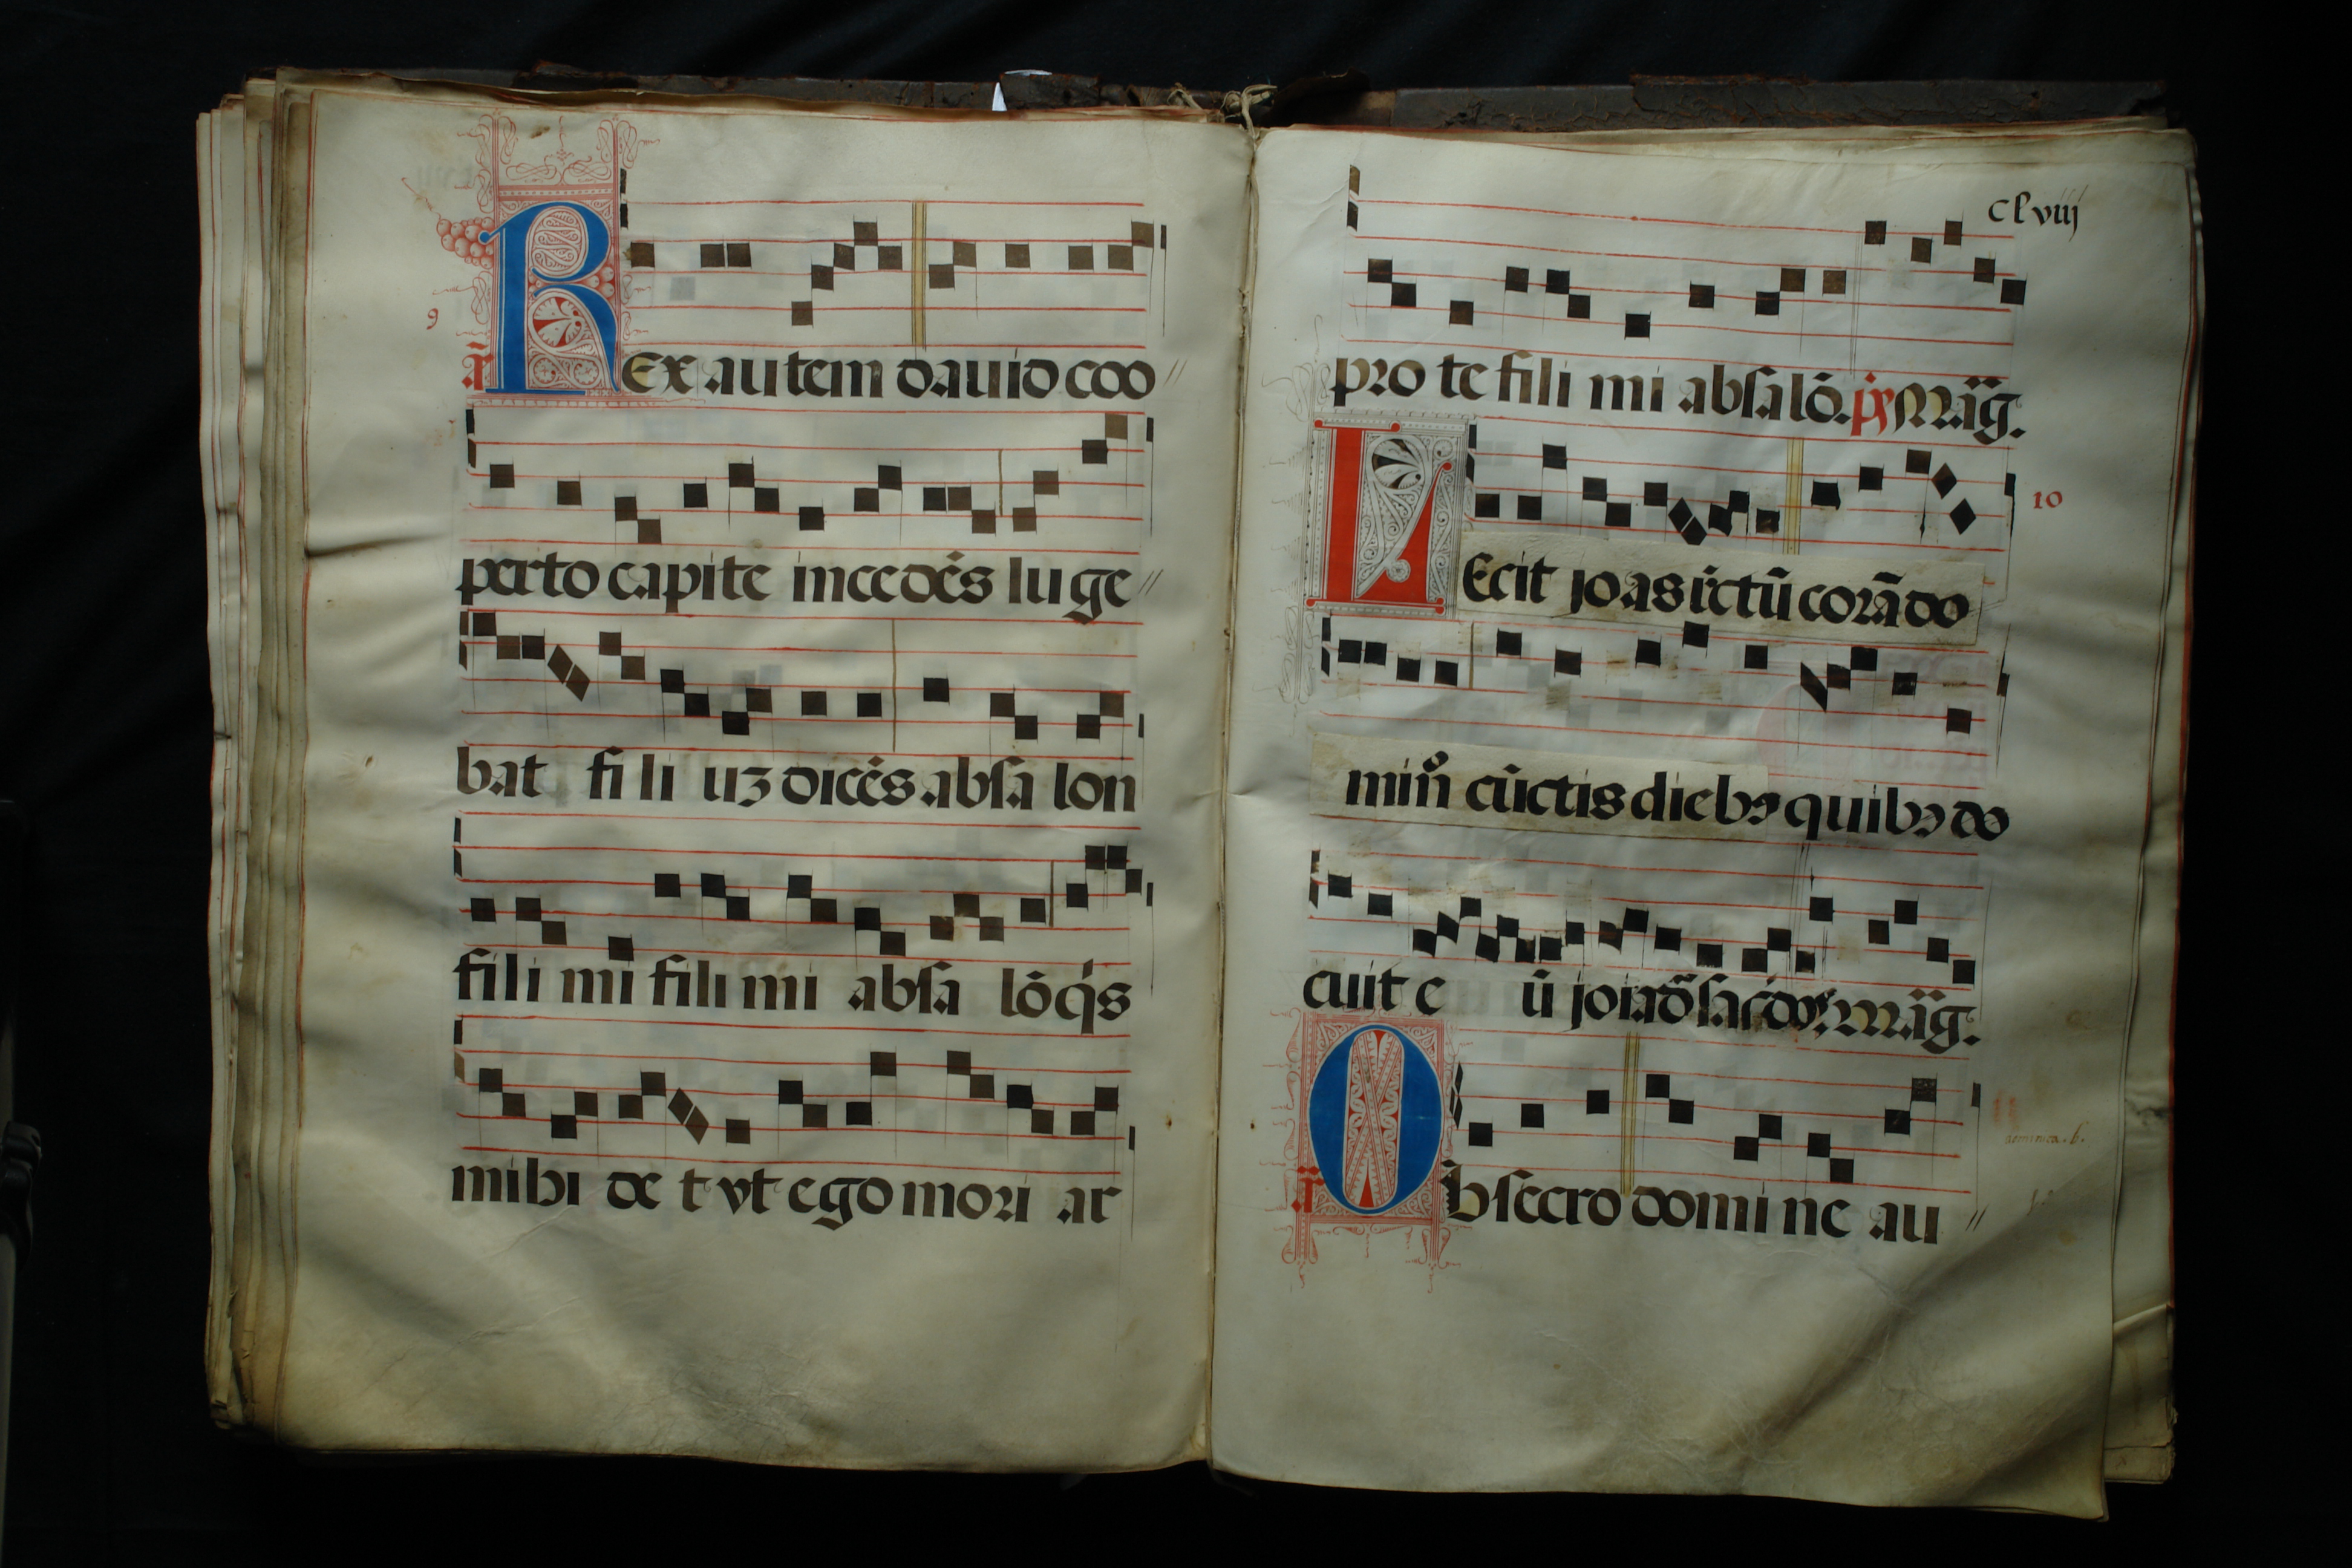 9
añ REx autem dauid coo //
perto capite incedēs luge //
bat fili uʒ dicēs absa lon
fili mi fili mi absa lō q̇s
mihi de t vt ego mori ar
clviij
pro te fili mi absalō. ps Mag̃.
FEcit joas rc̄tū corā do
10
min̊ cūctis diebꝰ quibꝫ do
cuit e ū joiadā sac̄dos. mag̃.
dominica. 6.
añ Obsecro domine au //